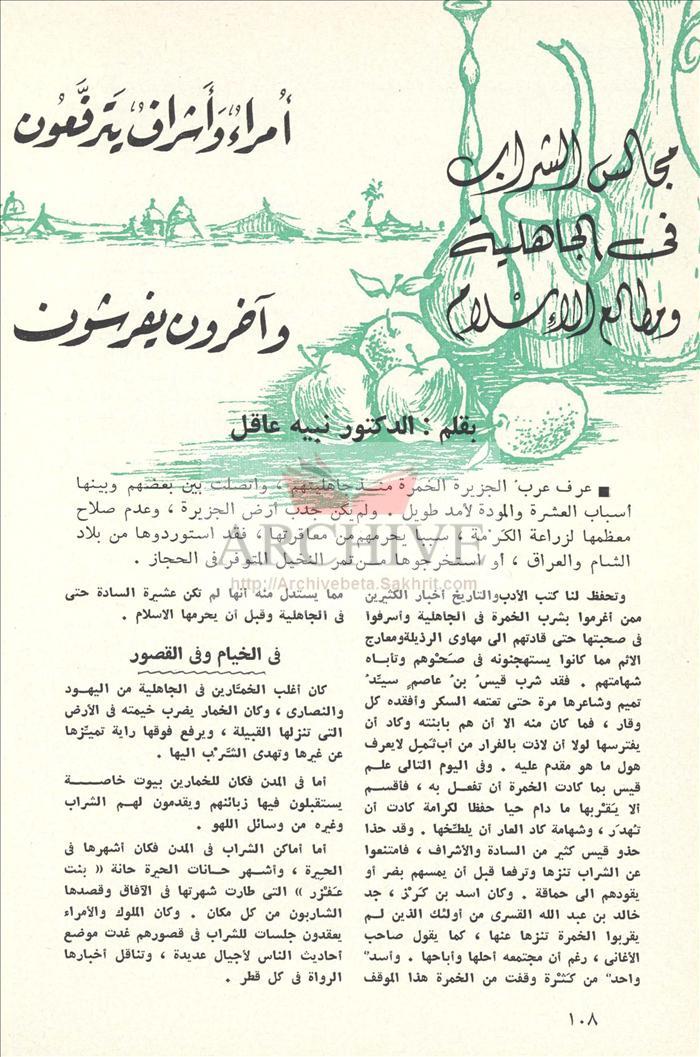 مجالس الشراب
فى الجاهلية
ومطالع الإسلام
أمراء وأشراف يترفَّعون
وآخرون يفرشون
بقلم : الدكتور نبيه عاقل
■ عرف عرب الجزيرة الخمرة منذ جاهليتهم ، واتصلت بين بعضهم وبينها
أسباب العشرة والمودة لأمد طويل . ولم يكن جدب أرض الجزيرة ، وعدم صلاح
معظمها لزراعة الكرمة ، سببا يحرمهم من معاقرتها ، فقد استوردوها من بلاد
الشام والعراق ، أو استخرجوها من تمر النخيل المتوفر فى الحجاز .
ARCHIVE
http://Archivebeta.Sakhrit.com
وتحفظ لنا كتب الأدب والتاريخ أخبار الكثيرين
ممن أغرموا بشرب الخمرة فى الجاهلية وأسرفوا
فى صحبتها حتى قادتهم الى مهاوى الرذيلة ومعارج
الاثم مما كانوا يستهجنونه فى صَحْوهم وتأباه
شهامتهم . فقد شرب قيسُ بنُ عاصمٍ سيِّدُ
تميم وشاعرها مرة حتى تعتعه السكر وأفقده كل
وقار ، فما كان منه الا أن هم بابنته وكاد أن
يفترسها لولا أن لاذت بالفرار من أب ثمِل لايعرف
هول ما هو مقدم عليه . وفى اليوم التالى علم
قيس بما كادت الخمرة أن تفعل به ، فأقسم
ألا يقْربها ما دام حيا حفظا لكرامة كادت أن
تهْدَر ، وشهامة كاد العار أن يلطِّخها . وقد حذا
حذو قيس كثير من السادة والأشراف ، فامتنعوا
عن الشراب تنزها وترفعا قبل أن يمسهم بضر أو
يقودهم الى حماقة . وكان اسد بن كَرْز ، جد
خالد بن عبد الله القسرى من أولئك الذين لم
يقربوا الخمرة تنزها عنها ، كما يقول صاحب
الأغانى ، رغم أن مجتمعه أحلها وأباحها . وأسدٌ
واحدٌ من كَثْرة وقفت من الخمرة هذا الموقف
مما يستدل منه أنها لم تكن عشيرة السادة حتى
فى الجاهلية وقبل أن يحرمها الاسلام .
فى الخيام وفى القصور
كان أغلب الخمَّارين فى الجاهلية من اليهود
والنصارى ، وكان الخمار يضرب خيمته فى الأرض
التى تنزلها القبيلة ، ويرفع فوقها راية تميِّزها
عن غيرها وتهدى الشَّرْب اليها .
أما فى المدن فكان للخمارين بيوت خاصة
يستقبلون فيها زبائنهم ويقدمون لهم الشراب
وغيره من وسائل اللهو .
أما أماكن الشراب فى المدن فكان أشهرها فى
الحِيرة ، وأشهر حانات الحيرة حانة « بنت
عَفْزر » التى طارت شهرتها فى الآفاق وقصدها
الشاربون من كل مكان . وكان الملوك والأمراء
يعقدون جلسات للشراب فى قصورهم غدت موضع
أحاديث الناس لأجيال عديدة ، وتناقل أخبارها
الرواة فى كل قطر .
١٠٨